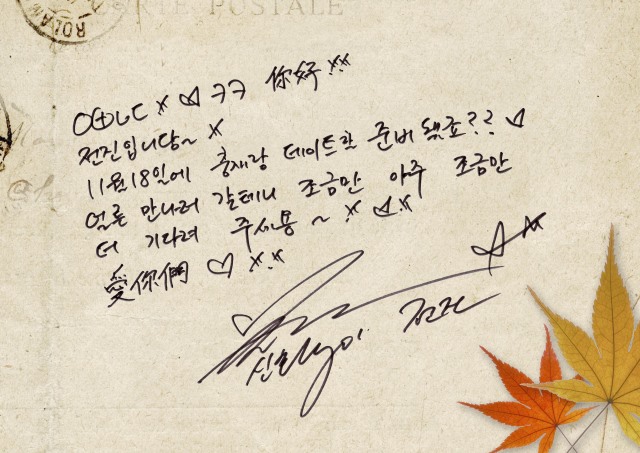 POSTALE
ㅋㅋ 你好
전진입니당~
11월18일에 충재랑 데이트할 준비 됐죠?? ♡
얼른 만나러 갈테니 조금만 아주 조금만
더 기다려 주세용~
愛你們 ♡
전진